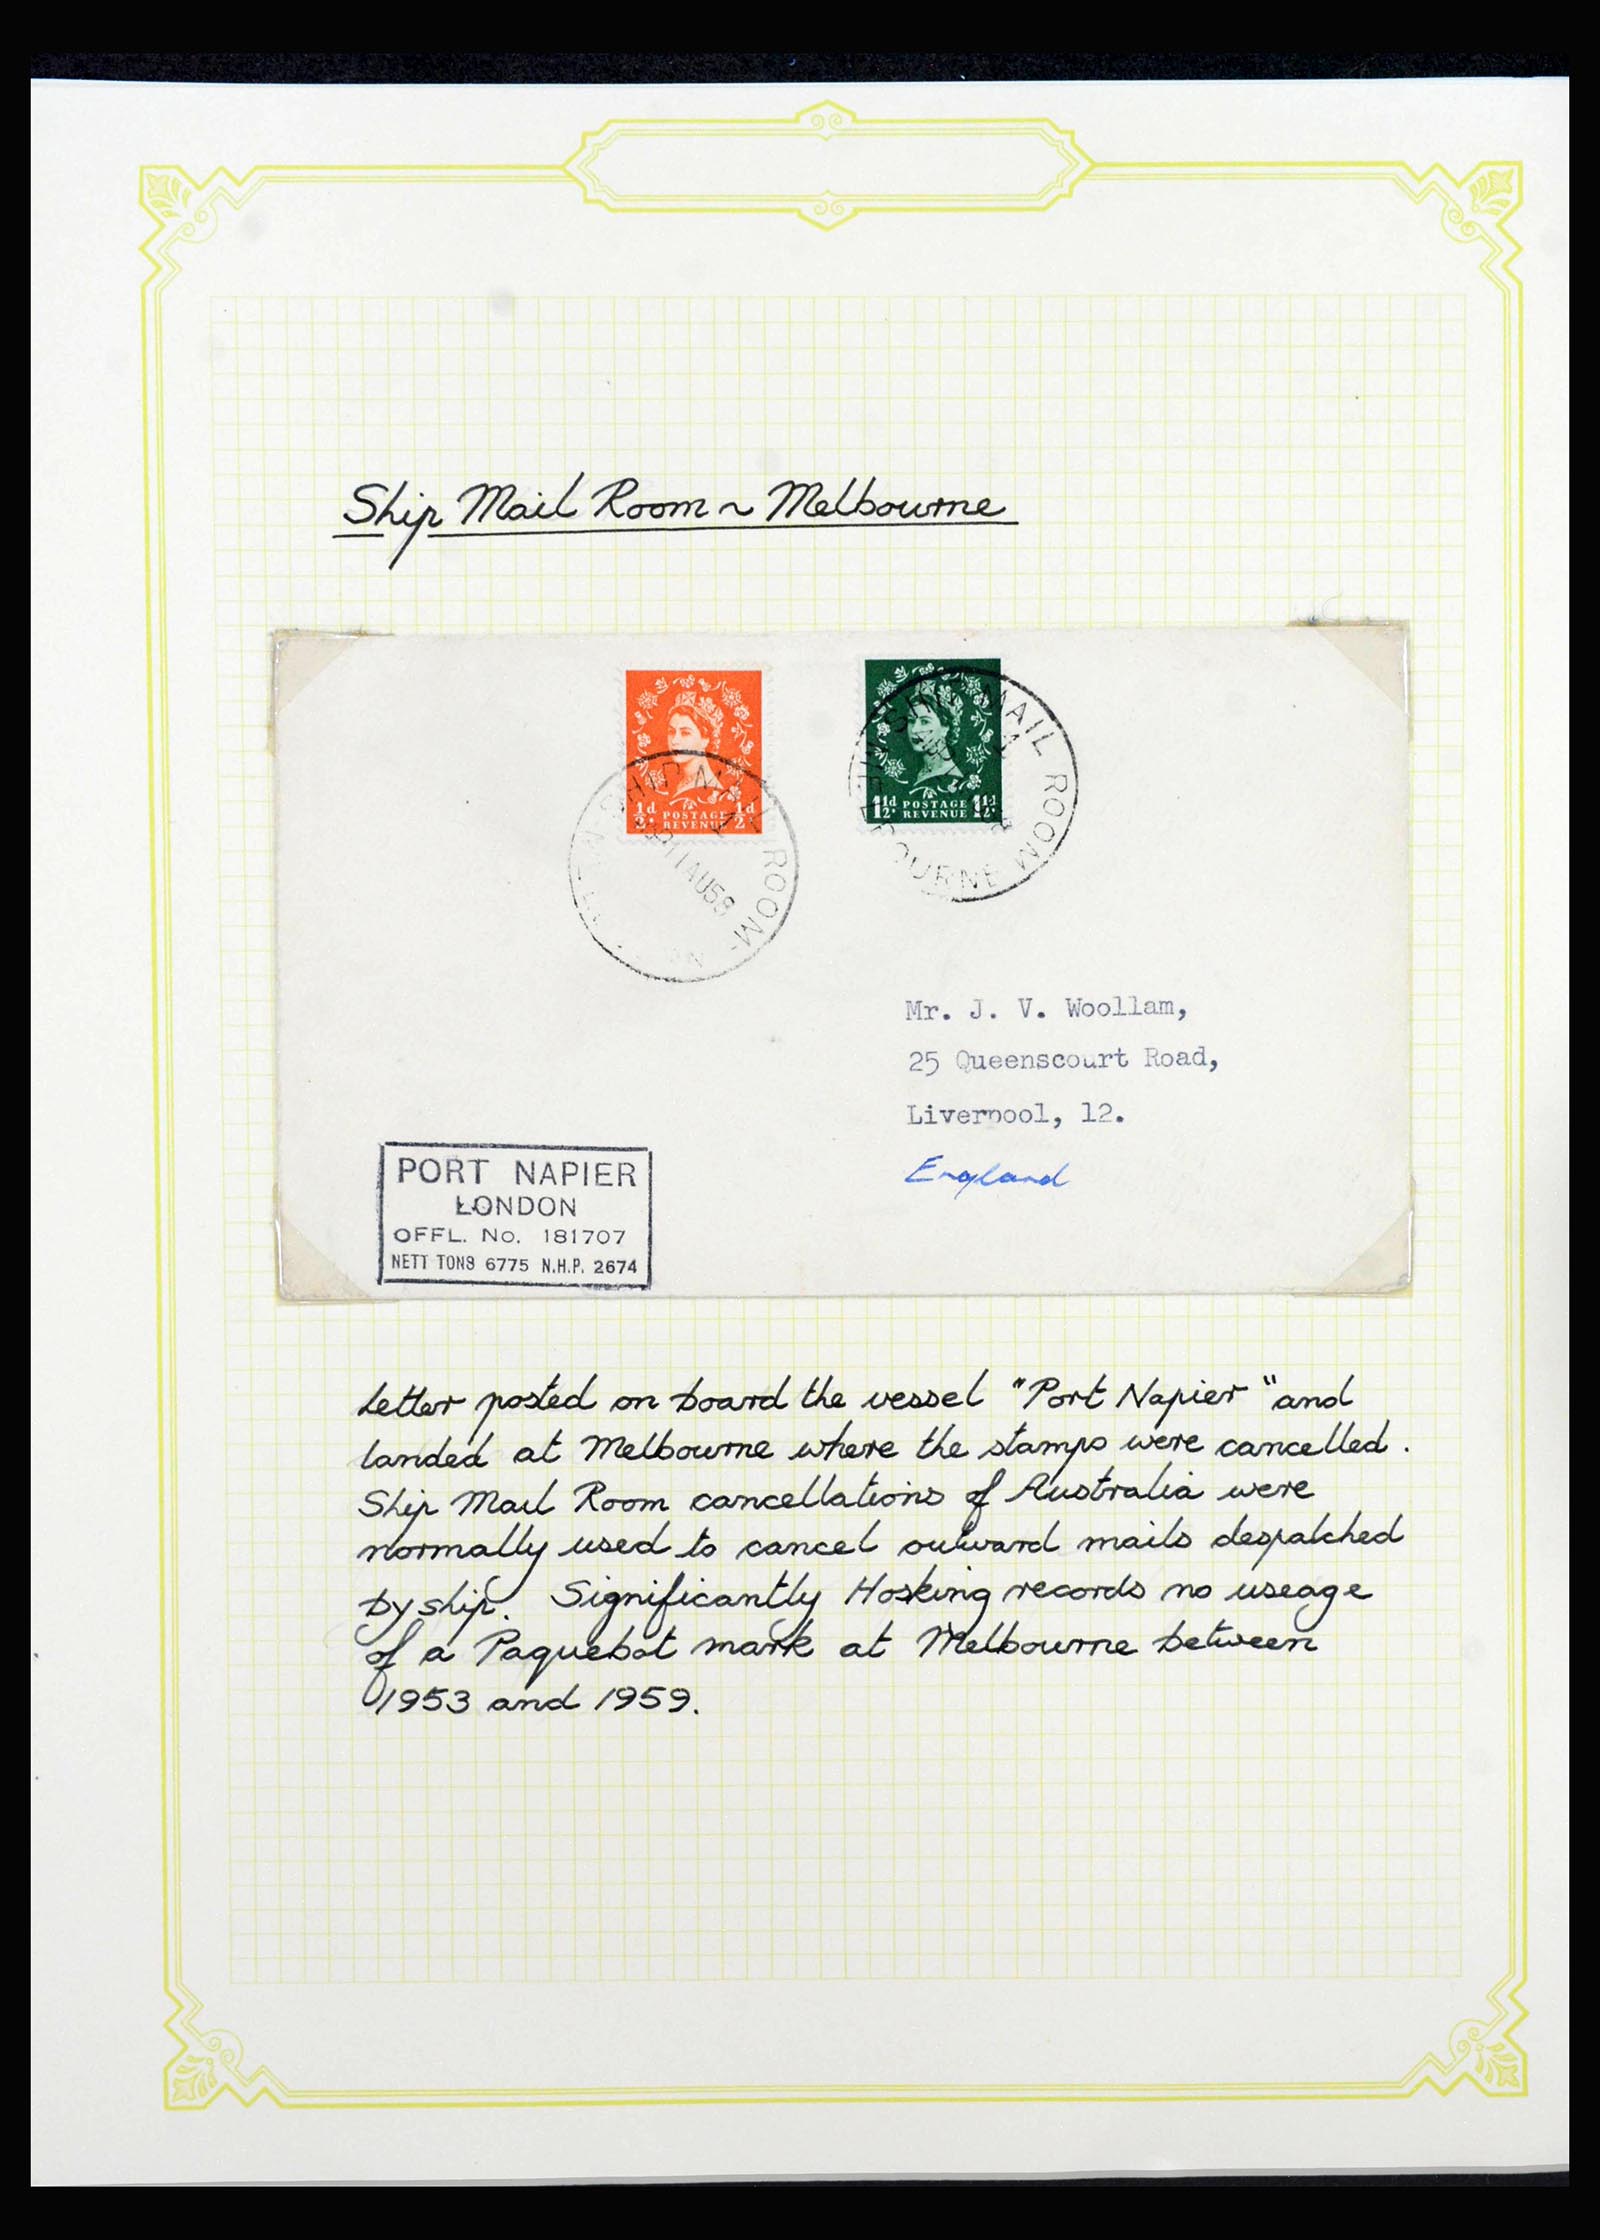 Ship Mail Room ~ Melbourne
½d POSTAGE ½d
REVENUE
SHIP MAIL ROOM
11 AU 58
1½d POSTAGE 1½d
REVENUE
SHIP MAIL ROOM
MELBOURNE
Mr. J. V. Woollam,
25 Queenscourt Road,
Liverpool, 12.
England
PORT NAPIER
LONDON
OFFL. No. 181707
NETT TONS 6775 N.H.P. 2674
Letter posted on board the vessel "Port Napier" and
landed at Melbourne where the stamps were cancelled.
Ship Mail Room cancellations of Australia were
normally used to cancel outward mails despatched
by ship. Significantly Hosking records no useage
of a Paquebot mark at Melbourne between
1953 and 1959.